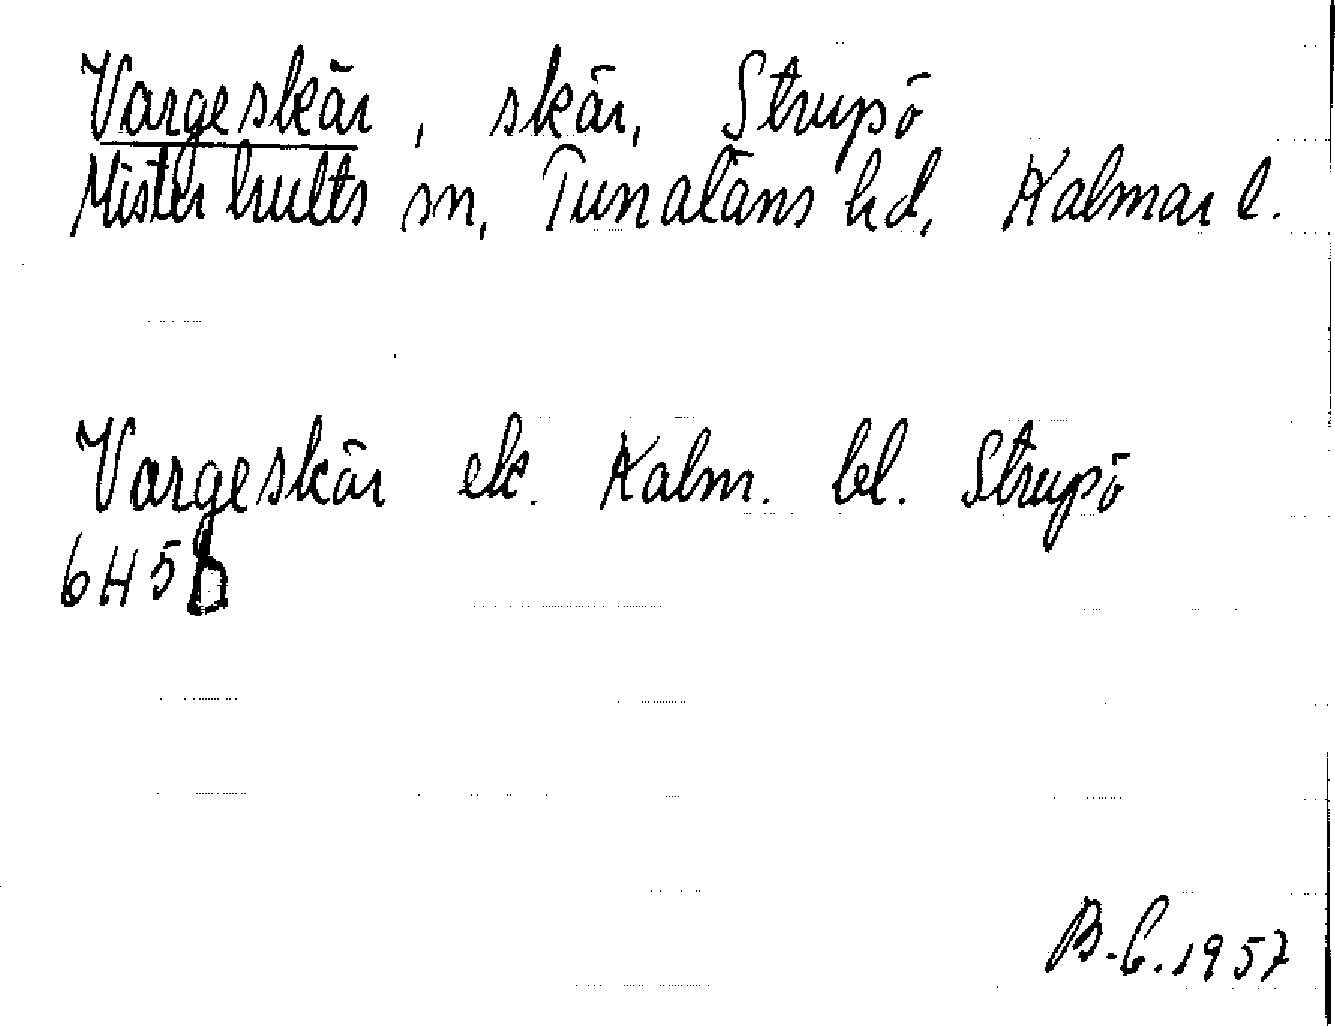 Vargeskär, skär, Strupö
Misterhults sn, Tunaläns hd, Kalmar l.
Vargeskär ek. Kalm. bl. Strupö
6H5b
B.C.1957